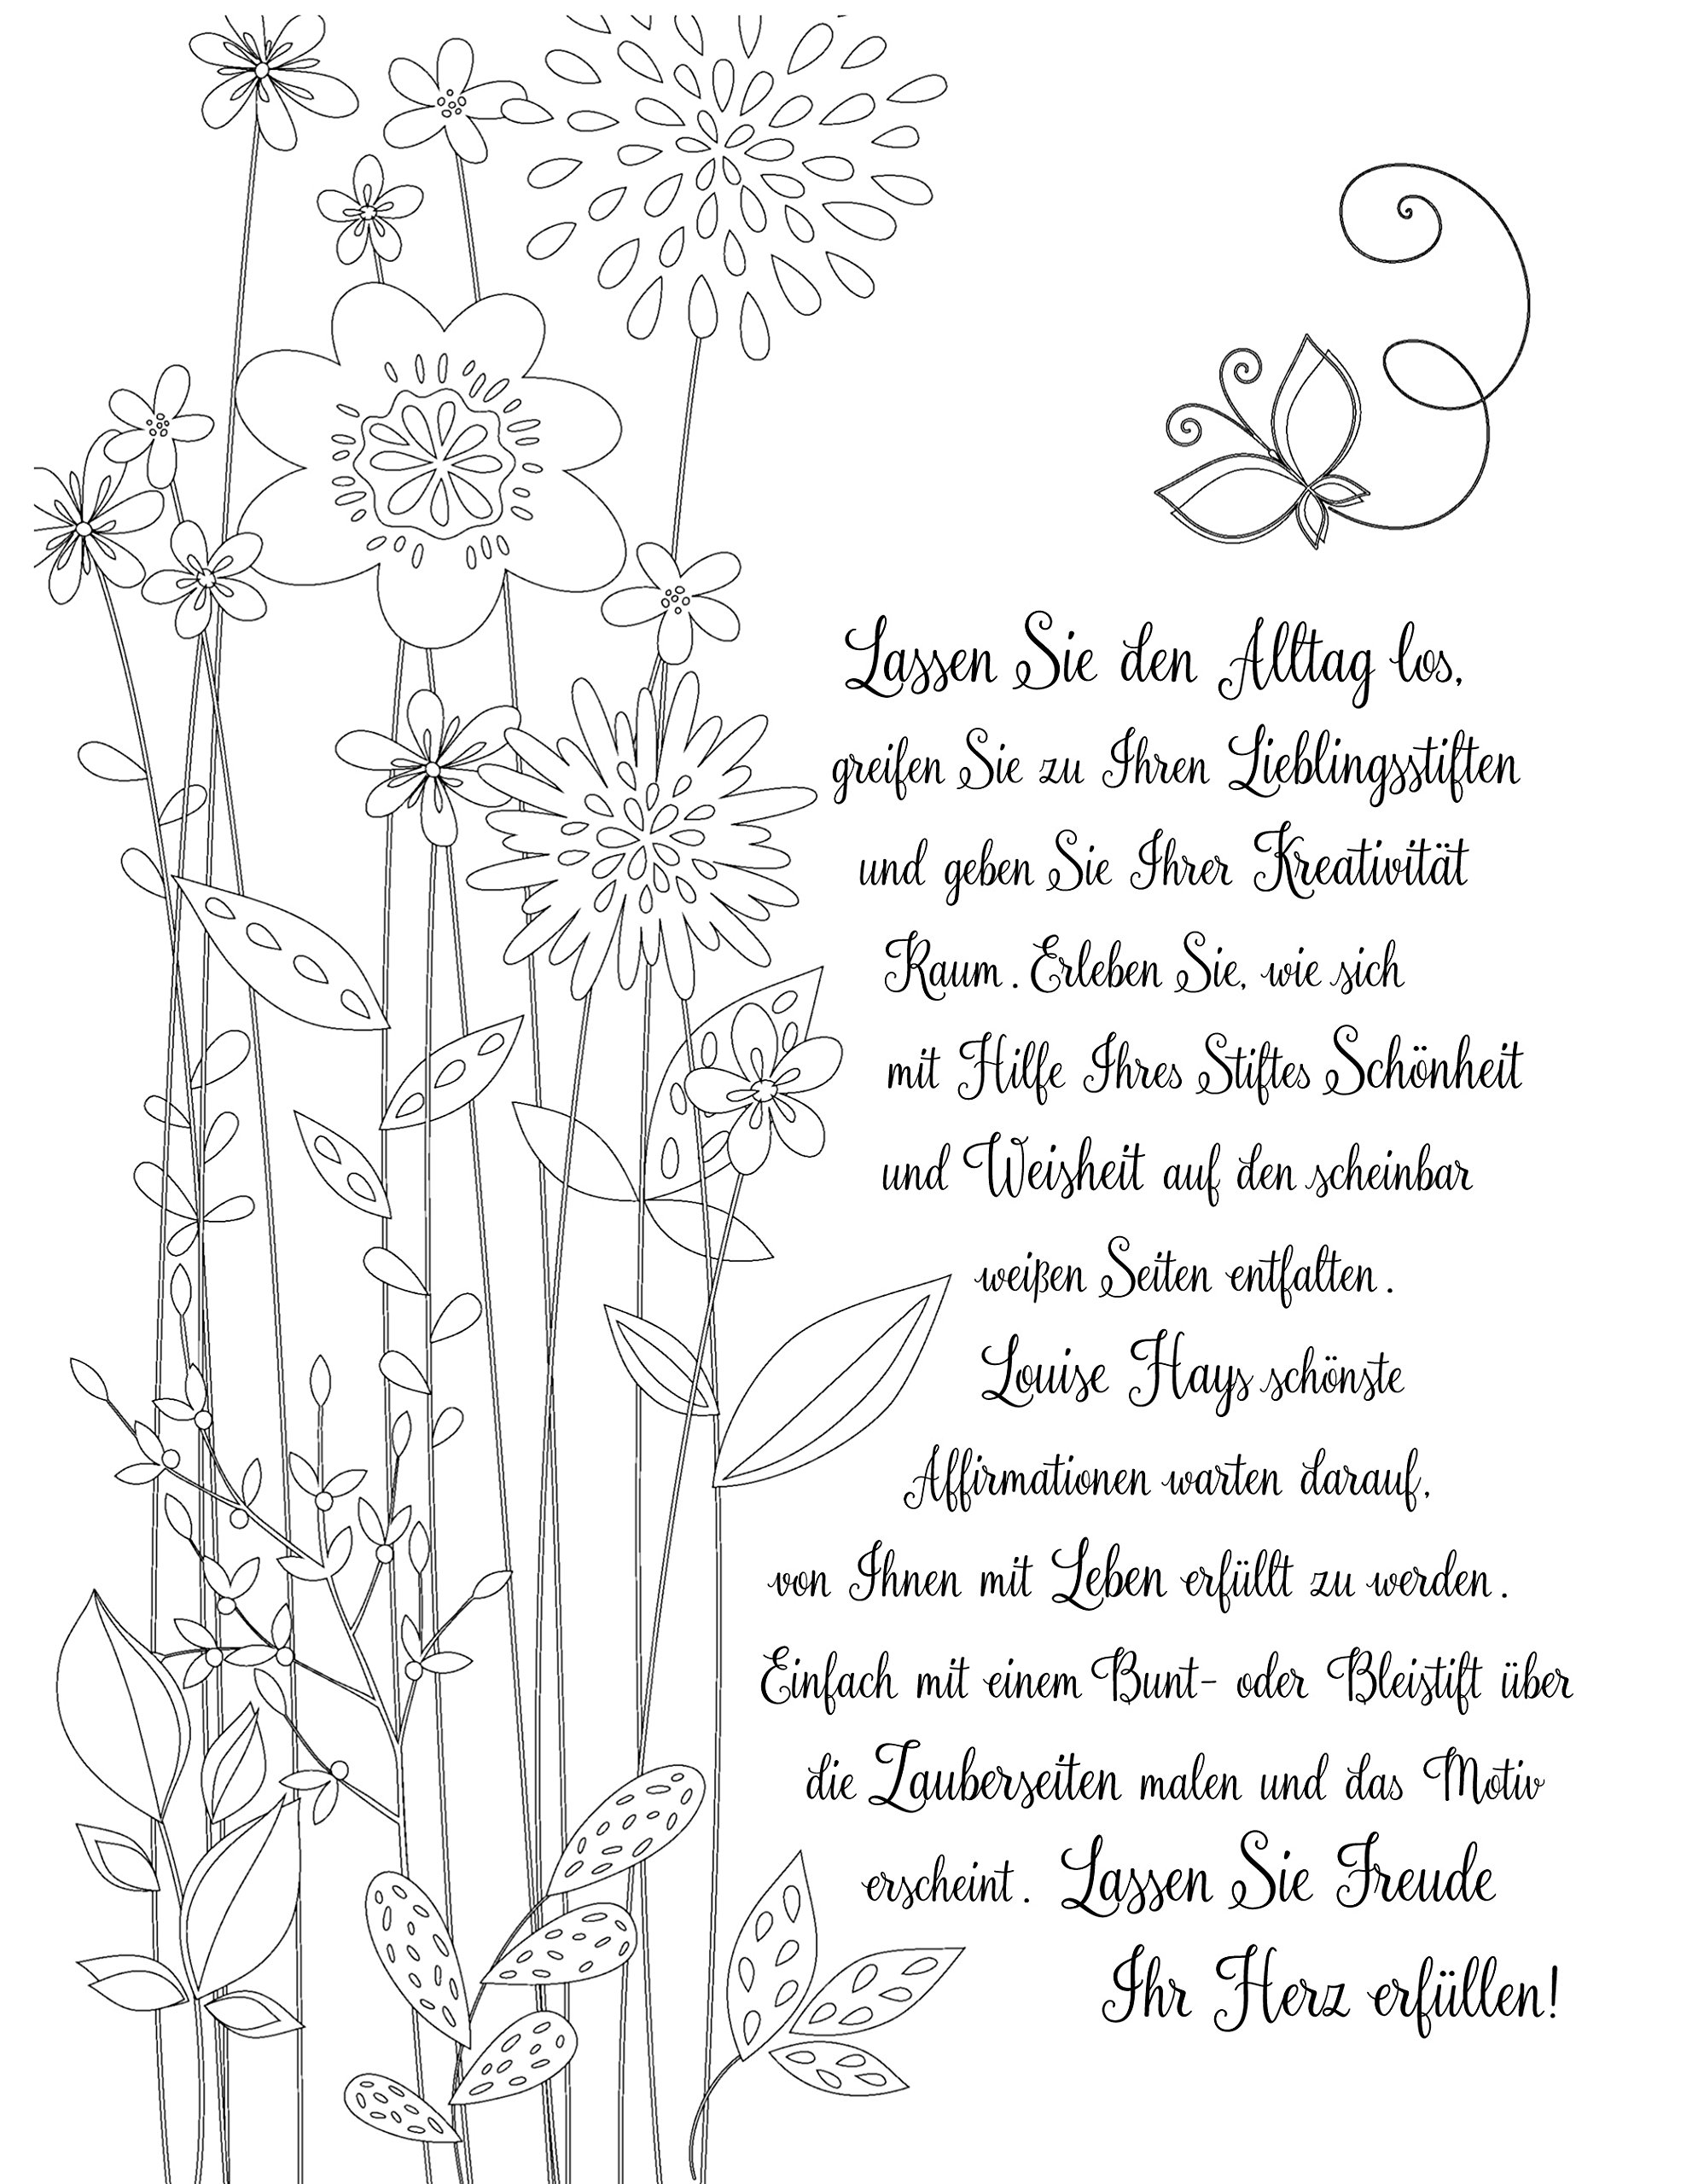 Lassen Sie den Alltag los,
greifen Sie zu Ihren Lieblingsstiften
und geben Sie Ihrer Kreativität
Raum. Erleben Sie, wie sich
mit Hilfe Ihres Stiftes Schönheit
und Weisheit auf den scheinbar
weißen Seiten entfalten.
Louise Hays schönste
Affirmationen warten darauf,
von Ihnen mit Leben erfüllt zu werden.
Einfach mit einem Bunt- oder Bleistift über
die Zauberseiten malen und das Motiv
erscheint. Lassen Sie Freude
Ihr Herz erfüllen!